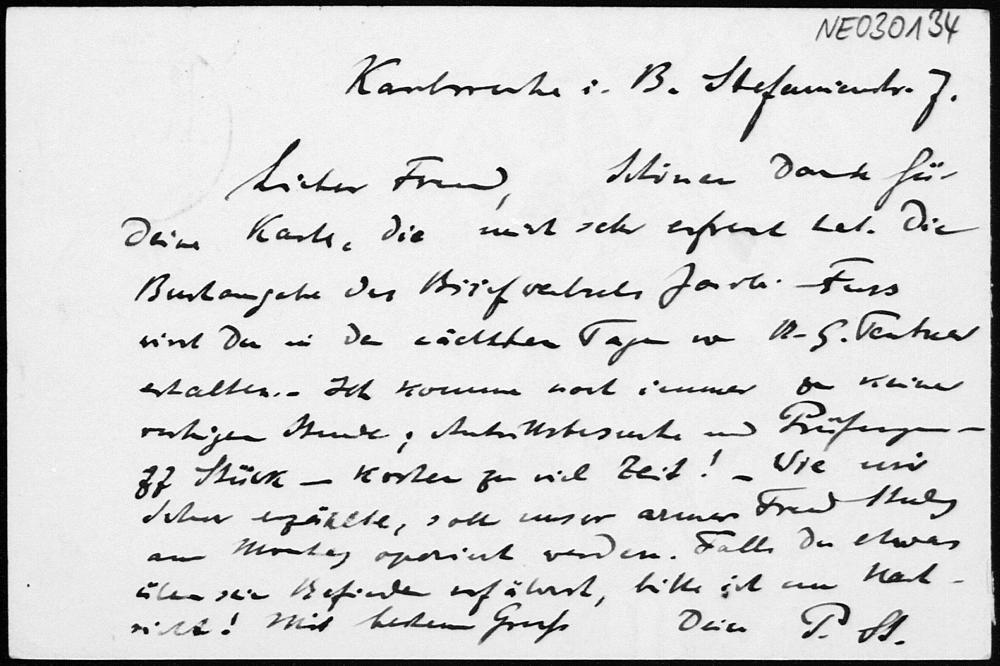 NE030134
Karlsruhe i. B. Stefanienstr. 7.
Lieber Freund, Schönen Dank für
Deine Karte, die mich sehr erfreut hat. Die
Buchausgabe des Briefwechsels Jacobi-Fuss
wirst Du in den nächsten Tagen von B. G. Teubner
erhalten. - Ich komme noch immer zu keiner
ruhigen Stunde; Antrittsbesuche und Prüfungen -
77 Stück - kosten zu viel Zeit! - Wie mir
erzählte, soll unser armer Freund
am Montag operiert werden. Falls Du etwas
über sein Befinden erfährst, bitte ich um Nach-
richt! Mit bestem Gruß Dein P. St.